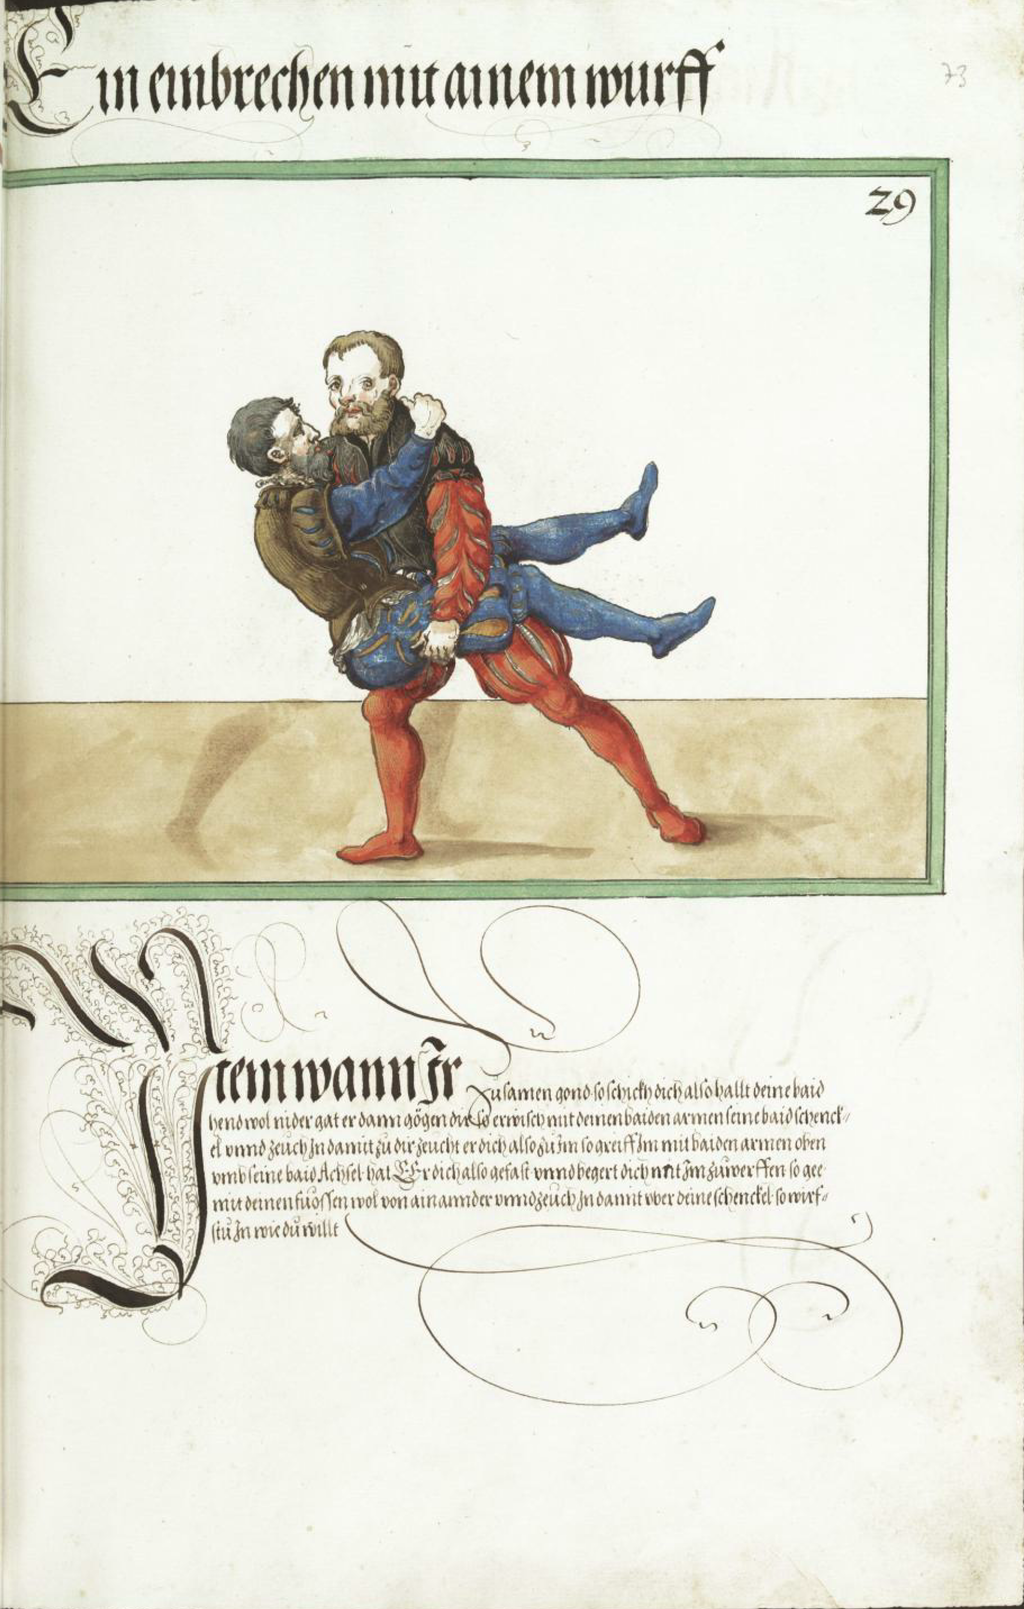 Ein einbrechen mit ainem wurff
73
29
Item wann Ir zusamen gond so schickh dich also hallt deine baid
hend wol nider gat er dann gögen dir so erwisch mit deinen baiden armen seine baid schenck-
el vnnd zeuch In damit zu dir zeucht er dich also zu Im so greiff Im mit baiden armen oben
vmb seine baid Achsel hat Er dich also gefast vnnd begert dich mit Im zuwerffen so gee
mit deinen fuossen wol von ain annder vnnd zeuch In dannt vber deine schenckel so wirf-
stu In wie du willt